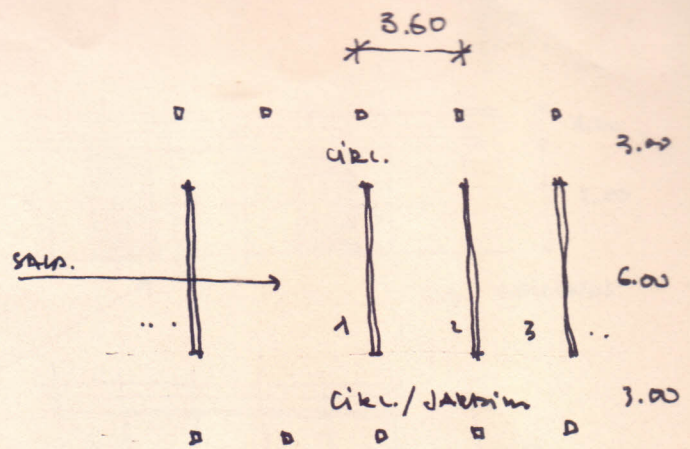 3.60
CIRC.
3.00
SALA.
6.00
... 1 2 3 ..
CIRC./JARDIM
3.00